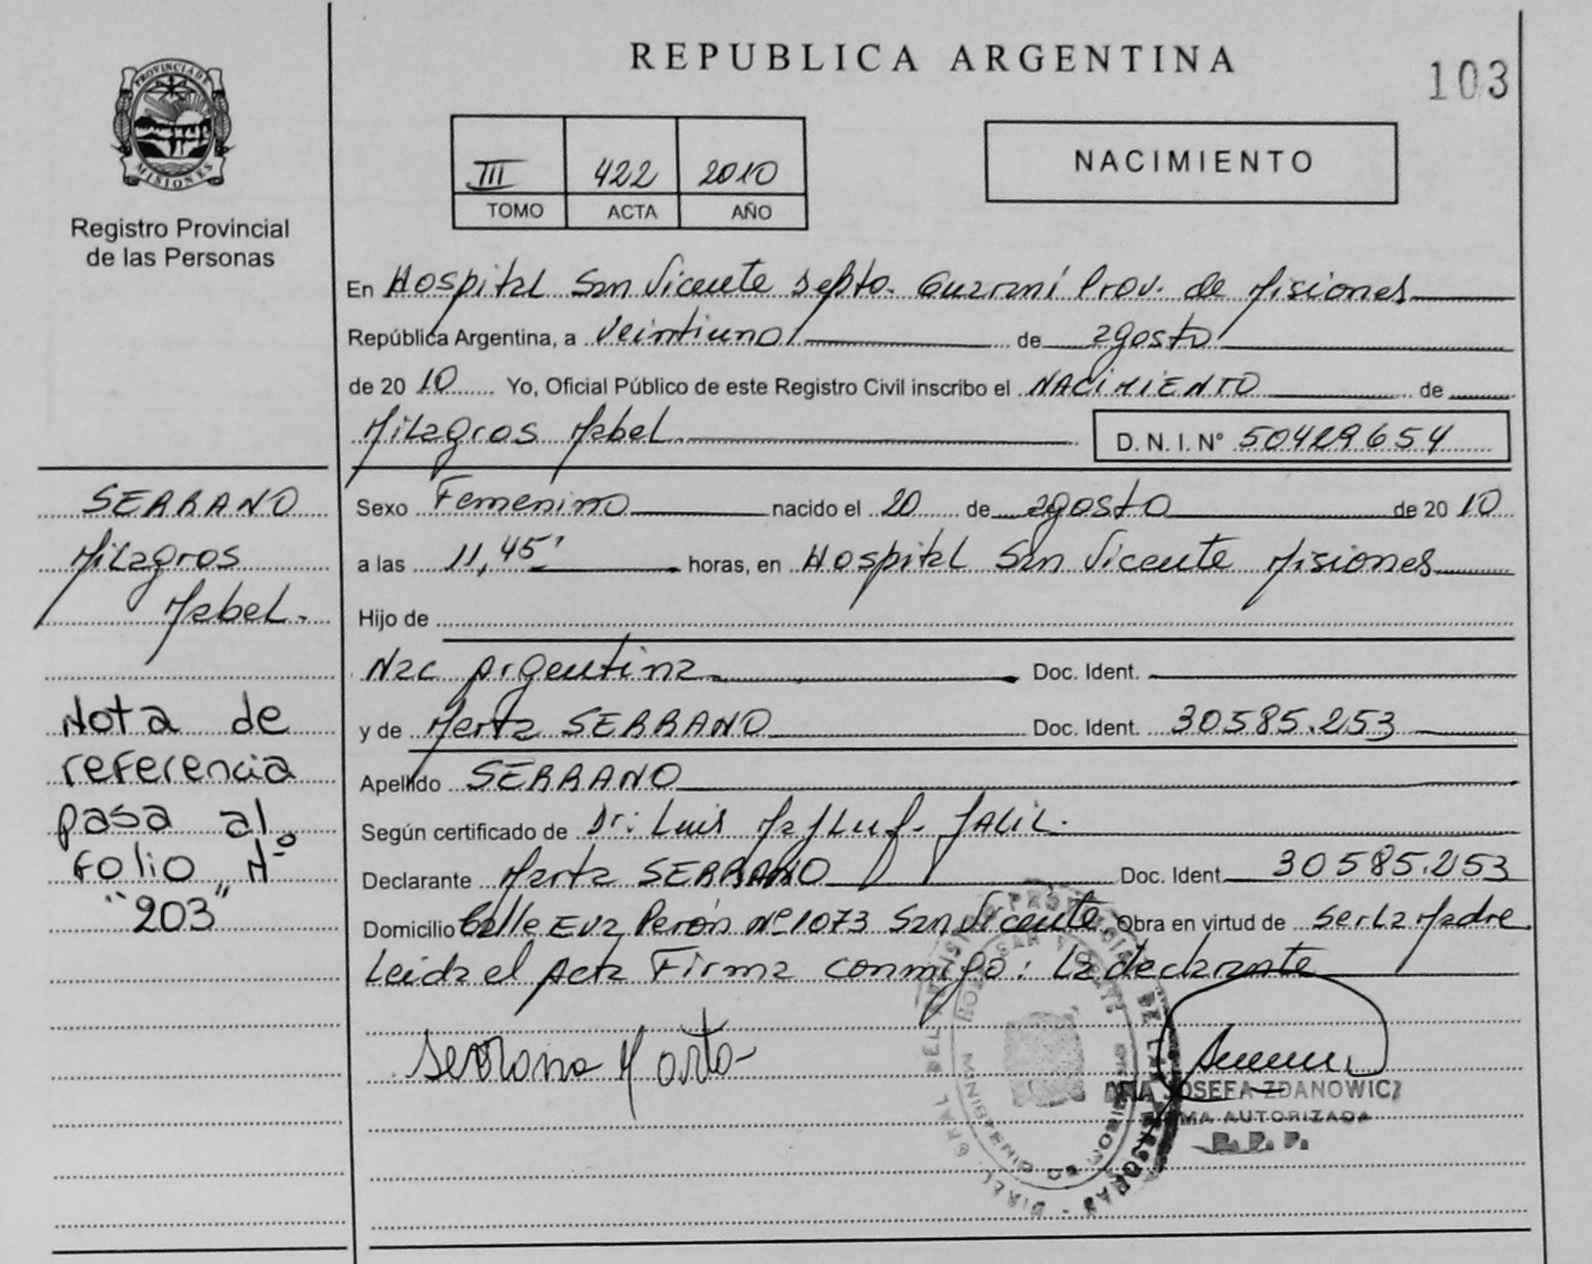 REPUBLICA ARGENTINA
103
PROVINCIA DE
MISIONES
Registro Provincial
de las Personas
III 422 2010
TOMO ACTA AÑO
NACIMIENTO
En Hospital San Vicente Depto. Guaraní Prov. de Misiones
República Argentina, a veintiuno de agosto
de 20 10 Yo, Oficial Público de este Registro Civil inscribo el NACIMIENTO de
Milagros Mabel. D. N. I. Nº 50429654
Sexo Femenino nacido el 20 de agosto de 20 10
a las 11,45' horas, en Hospital San Vicente Misiones
Hijo de
Nac Argentina Doc. Ident.
y de Marta SERRANO Doc. Ident. 30585.253
Apellido SERRANO
Según certificado de Dr: Luis JALIL.
Declarante Marta SERRANO Doc. Ident. 30585.253
Domicilio Calle Eva Perón Nº 1073 San Vicente. Obra en virtud de ser La Madre
Leida el Acta Firma conmigo: La declarante
Serrano Marta
JOSEFA ZDANOWICZ
AUTORIZADA
R. P. P.
SERRANO
Milagros
Mabel.
Nota de
referencia
pasa al
Folio Nº
"203"